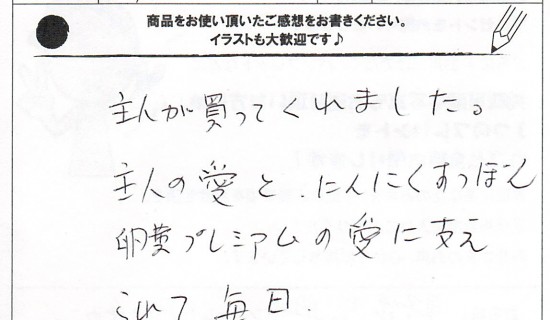 商品をお使い頂いたご感想をお書きください。
イラストも大歓迎です♪
主人が買ってくれました。
主人の愛と、にんにくすっぽん
卵黄プレミアムの愛に支え
られて毎日、